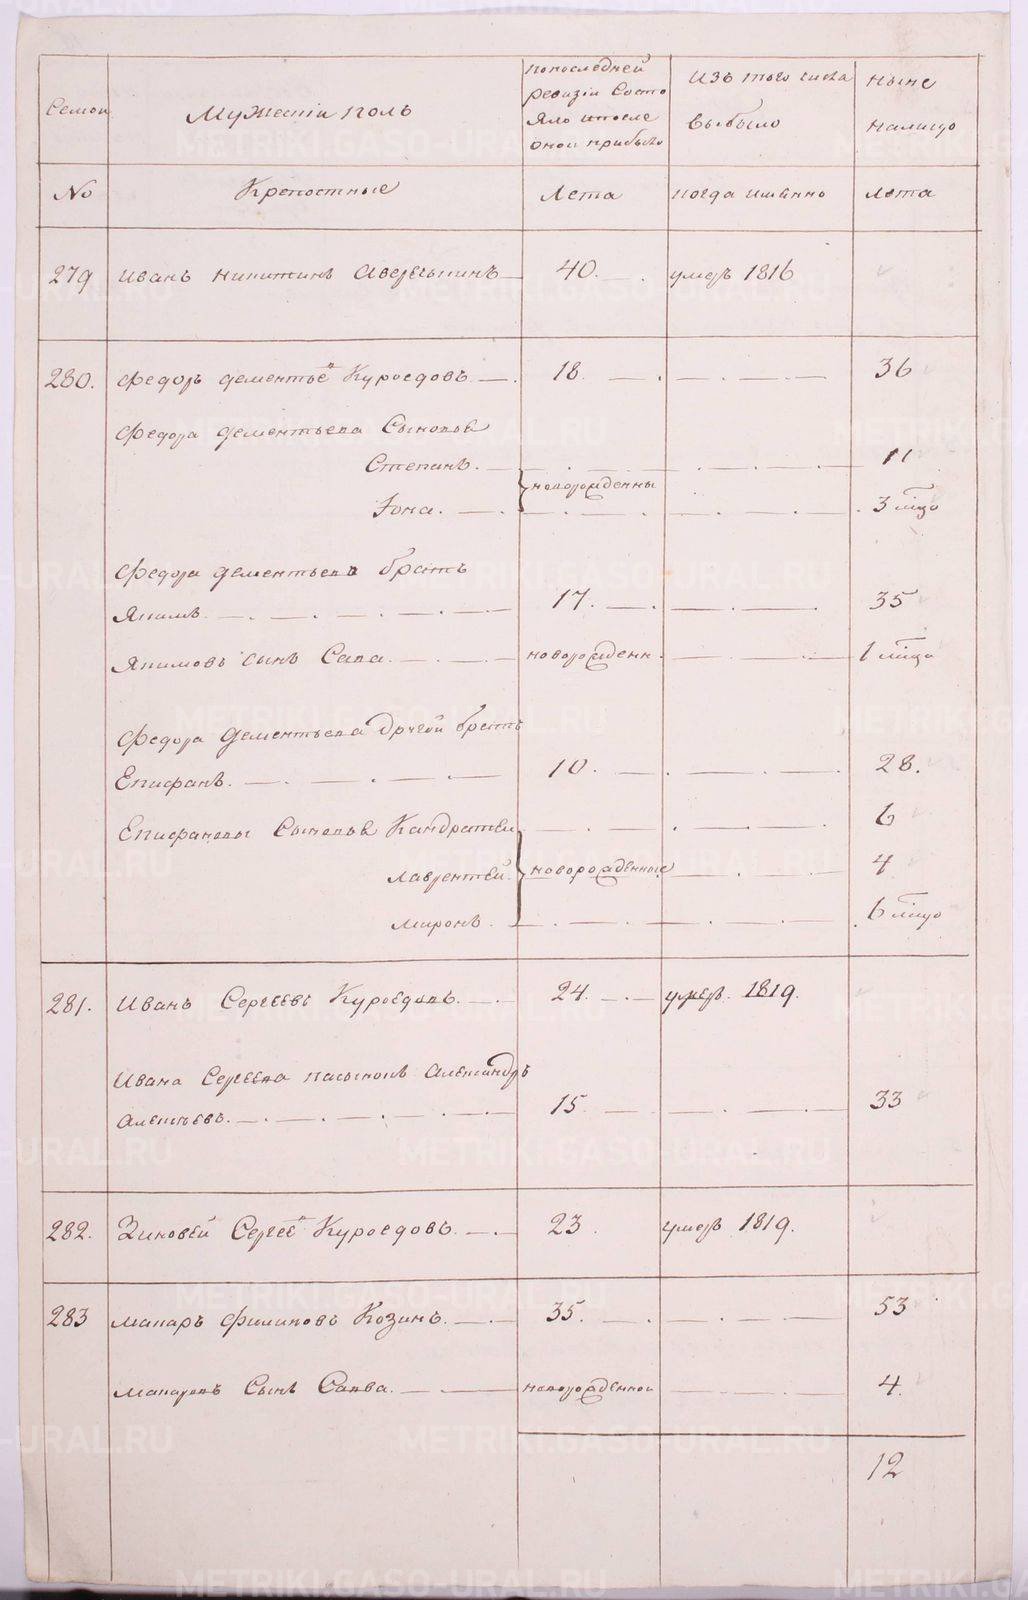 Семьи
Мужескiй полъ
по последней
ревизiи состо
яло и после
оной прибыло
Изъ того числа
выбыло
ныне
налицо
No
Крепостные
Лета
когда именно
Лета
279 Иванъ Никитинъ Аверкыпинъ 40. умеръ 1816
280. Федоръ Дементьевъ Куроедовъ 18. 36
Федора Дементьева Сыновья
Степанъ. 11
новорожденны
Iона. 3 мцо
Федора Дементьева братъ
Якимъ. 17. 35
Якимовъ сынъ Сава. новорожденн. 1 мцо
Федора Дементьева другой братъ
Епифанъ. 10. 28.
Епифановы Сыновья Кандратеи 6
Лаврентей. новорожденные 4
Миронъ. 6 мцо
281. Иванъ Сергеевъ Куроедовъ. 24. умеръ. 1819.
Ивана Сергеева пасынокъ Александръ
Алексеевъ. 15 33
282. Зиновей Сергеевъ Куроедовъ. 23. умеръ 1819.
283 Макаръ Филиповъ Козинъ. 35. 53
Макаровъ Сынъ Савва. новорожденной 4.
12
METRIKI.GASO-URAL.RU